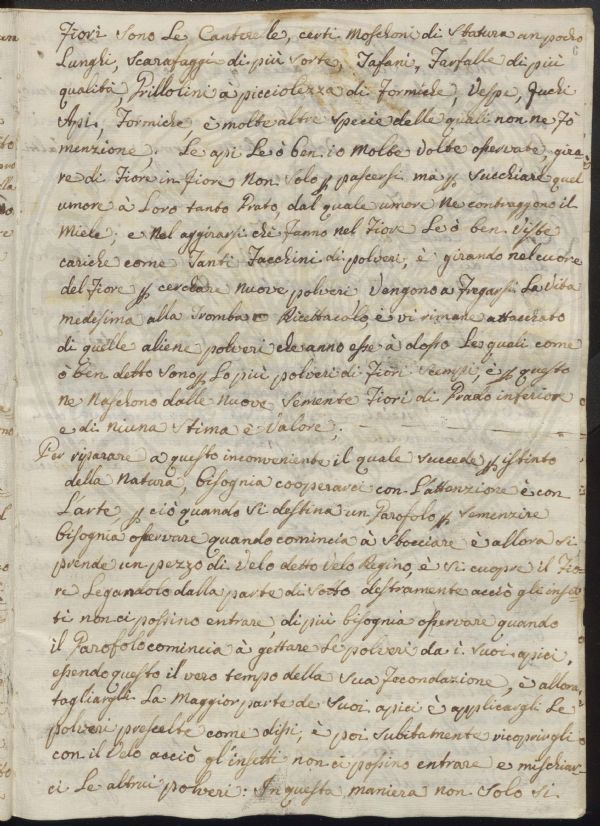 Fiori sono Le Canterelle, certi Moschoni di Statura un pocho
Lunghi, Scarafaggi di più sorte, Tafani, Farfalle di più
qualità, Grillolini à picciolezza di Formiche, Vespe, fuchi
Api, Formiche, è molte altre specie delle quali non ne fò
menzione; Le api Le ò ben io Molte Volte osservate, gira-
re di Fiore in fiore Non Solo p pascersi ma p Succhiare quel
umore à Loro tanto Grato, dal quale umore Ne contraggono il
Miele; e Nel aggirarsi che fanno nel Fiore Le ò ben Viste
cariche come Tanti Facchini di polveri, è girando nel cuore
del Fiore p cerchare Nuove polveri, Vengono a Fregarsi La Vita
medesima alla Tromba Ricettacolo, è vi rimane attacchato
di quelle aliene polveri che anno esse à dosso Le quali come
ò ben detto sono p Lo più polveri di Fiori Scempi, è p questo
Ne Naschono dalle Nuove Semente Fiori di Prado inferiore
e di niuna Stima e Valore;
Per riparare a questo inconveniente il quale succede p istinto
della Natura, bisognia cooperarci con L'attenzione è con
L'arte p ciò quando Si destina un Garofolo p Semenzire
bisognia osservare quando comincia à Sbocciare è allora si
prende un pezzo di Velo detto Velo Regino, è Si cuopre il Fio-
re Legandolo dalla parte di Sotto destramente acciò gli inset-
ti non ci possino entrare, di più bisognia osservare quando
il Garofolo comincia à gettare Le polveri da i Suoi apici,
essendo questo il vero tempo della Sua Fecondazione, è allora
tagliargli La Maggior parte de Suoi apici è applicargli Le
polveri prescelte come dissi, è poi Subitamente ricoprirgli
con il Velo acciò gl'insetti non ci possino entrare e mischiar-
ci Le altrui polveri: In questa maniera non Solo Si